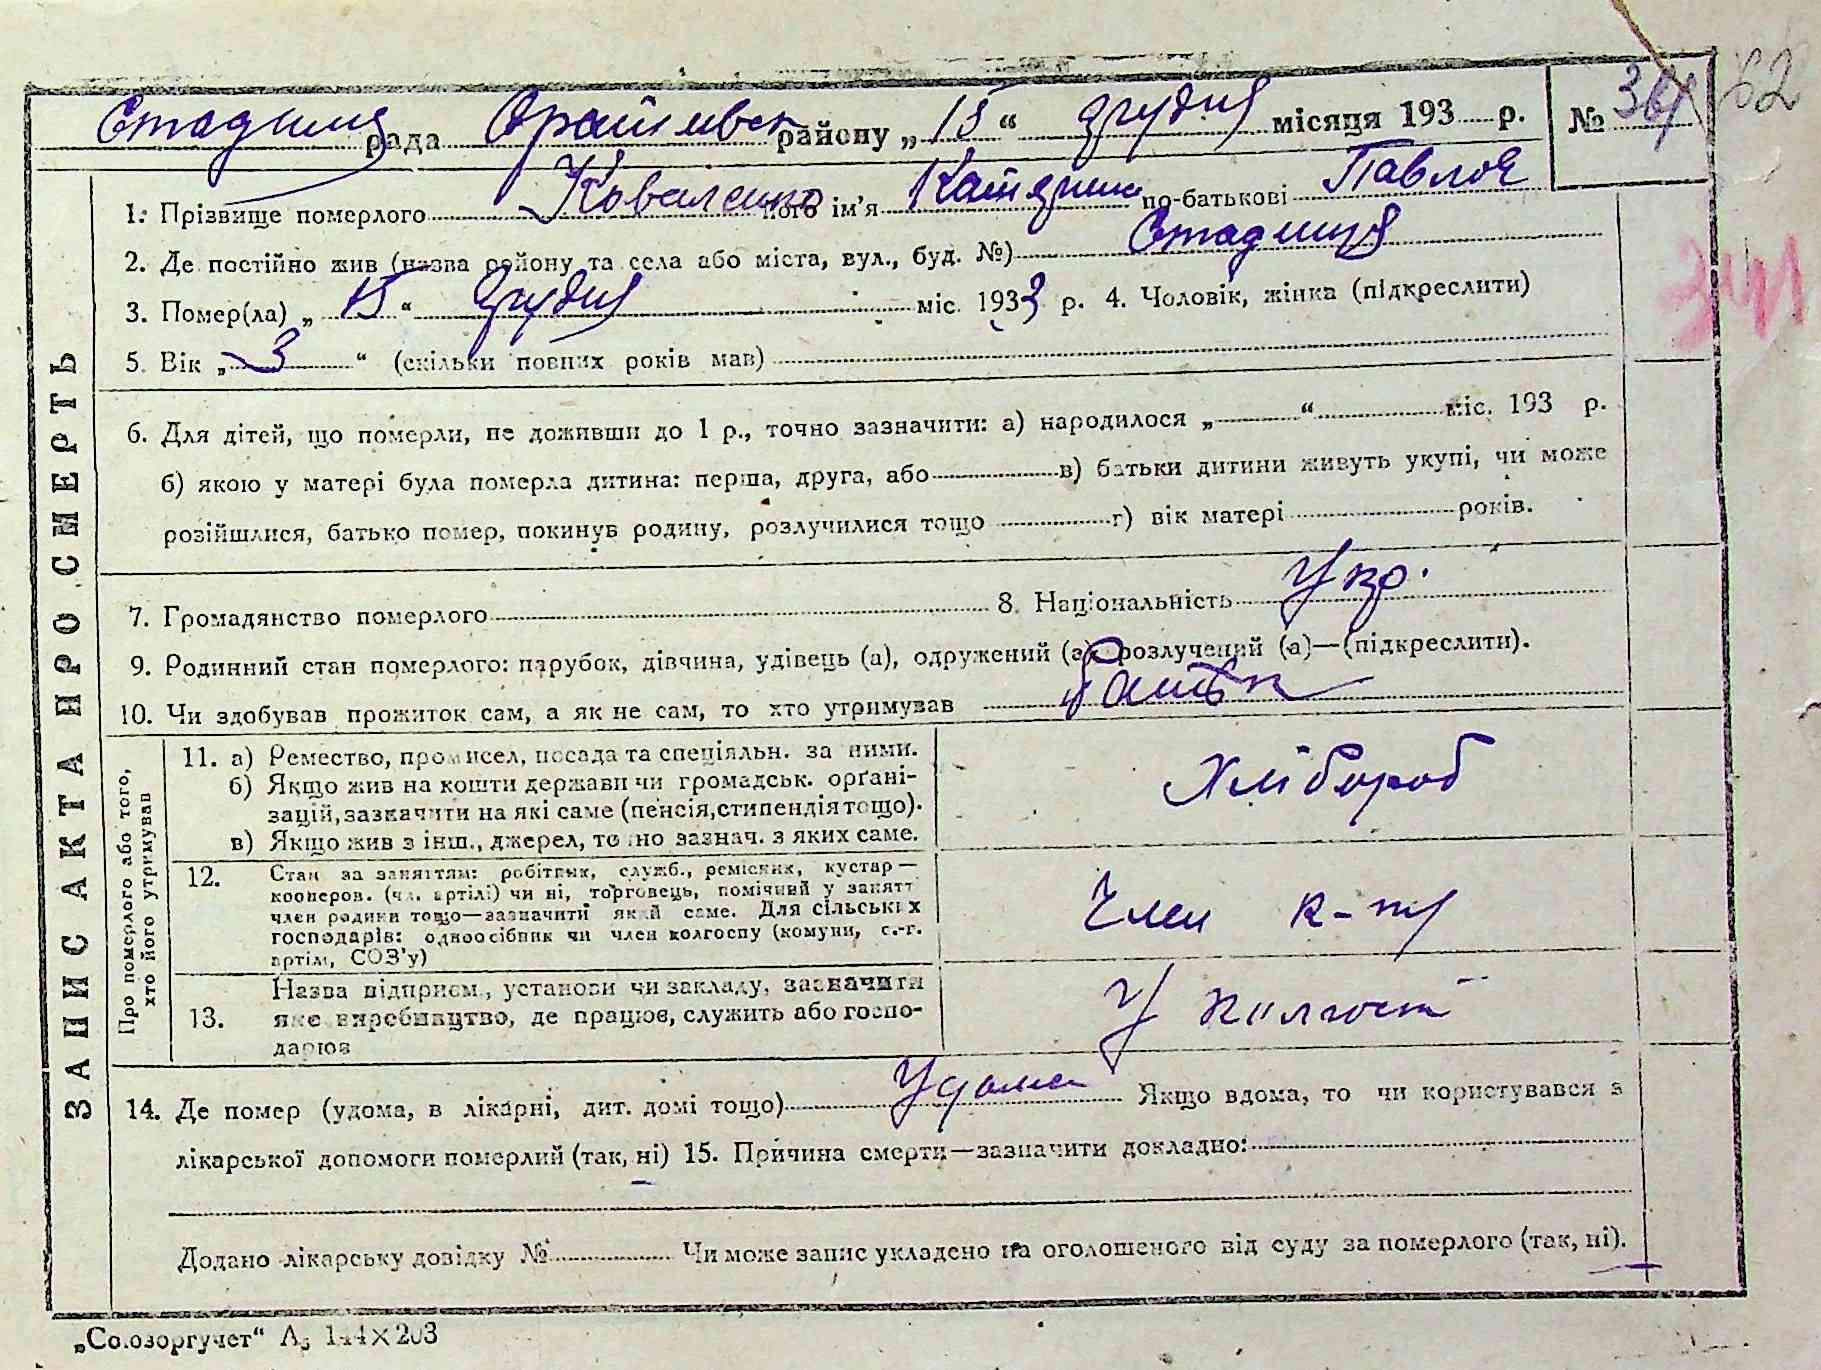 Стадниця рада Оратівськ району „ 15 “ грудня місяця 193 р. №
62
1. Прізвище померлого Коваленко його ім'я Катерина по-батькові Павлов
2. Де постійно жив (назва району та села або міста, вул., буд. №) Стадниця
3. Помер(ла) „ 15 “ грудня міс. 1933 р. 4. Чоловік, жінка (підкреслити)
341
5. Вік „ 3 “ (скільки повних років мав)
6. Для дітей, що померли, не доживши до 1 р., точно зазначити: а) народилося „ “ міс. 193 р.
б) якою у матері була померла дитина: перша, друга, або в) батьки дитини живуть укупі, чи може
розійшлися, батько помер, покинув родину, розлучилися тощо г) вік матері років.
7. Громадянство померлого 8. Національність Укр.
9. Родинний стан померлого: парубок, дівчина, удівець (а), одружений (а), розлучений (а)—(підкреслити).
10. Чи здобував прожиток сам, а як не сам, то хто утримував батьк
ЗАПИС АКТА ПРО СМЕРТЬ
Про померлого або того, хто його утримував
11. а) Ремество, промисел, посада та спеціяльн. за ними.
б) Якщо жив на кошти держави чи громадськ. орґані-
зацій, зазначити на які саме (пенсія, стипендія тощо).
в) Якщо жив з інш., джерел, точно зазнач. з яких саме.
Хлібороб
12. Стан за заняттям: робітник, служб., ремісник, кустар—
кооперов. (чл. артілі) чи ні, торговець, помічний у занятт
член родини тощо—зазначити який саме. Для сільських
господарів: одноосібник чи член колгоспу (комуни, с.-г.
артілі, СОЗ'у)
Член к-пу
13. Назва підприєм., установи чи закладу, зазначити
яке виробництво, де працює, служить або госпо-
дарює
У колгоспі
14. Де помер (удома, в лікарні, дит. домі тощо) Удома Якщо вдома, то чи користувався з
лікарської допомоги померлий (так, ні) 15. Причина смерти—зазначити докладно:
Додано лікарську довідку № Чи може запис укладено на оголошеного від суду за померлого (так, ні).
„Союзоргучет“ А5 144×203